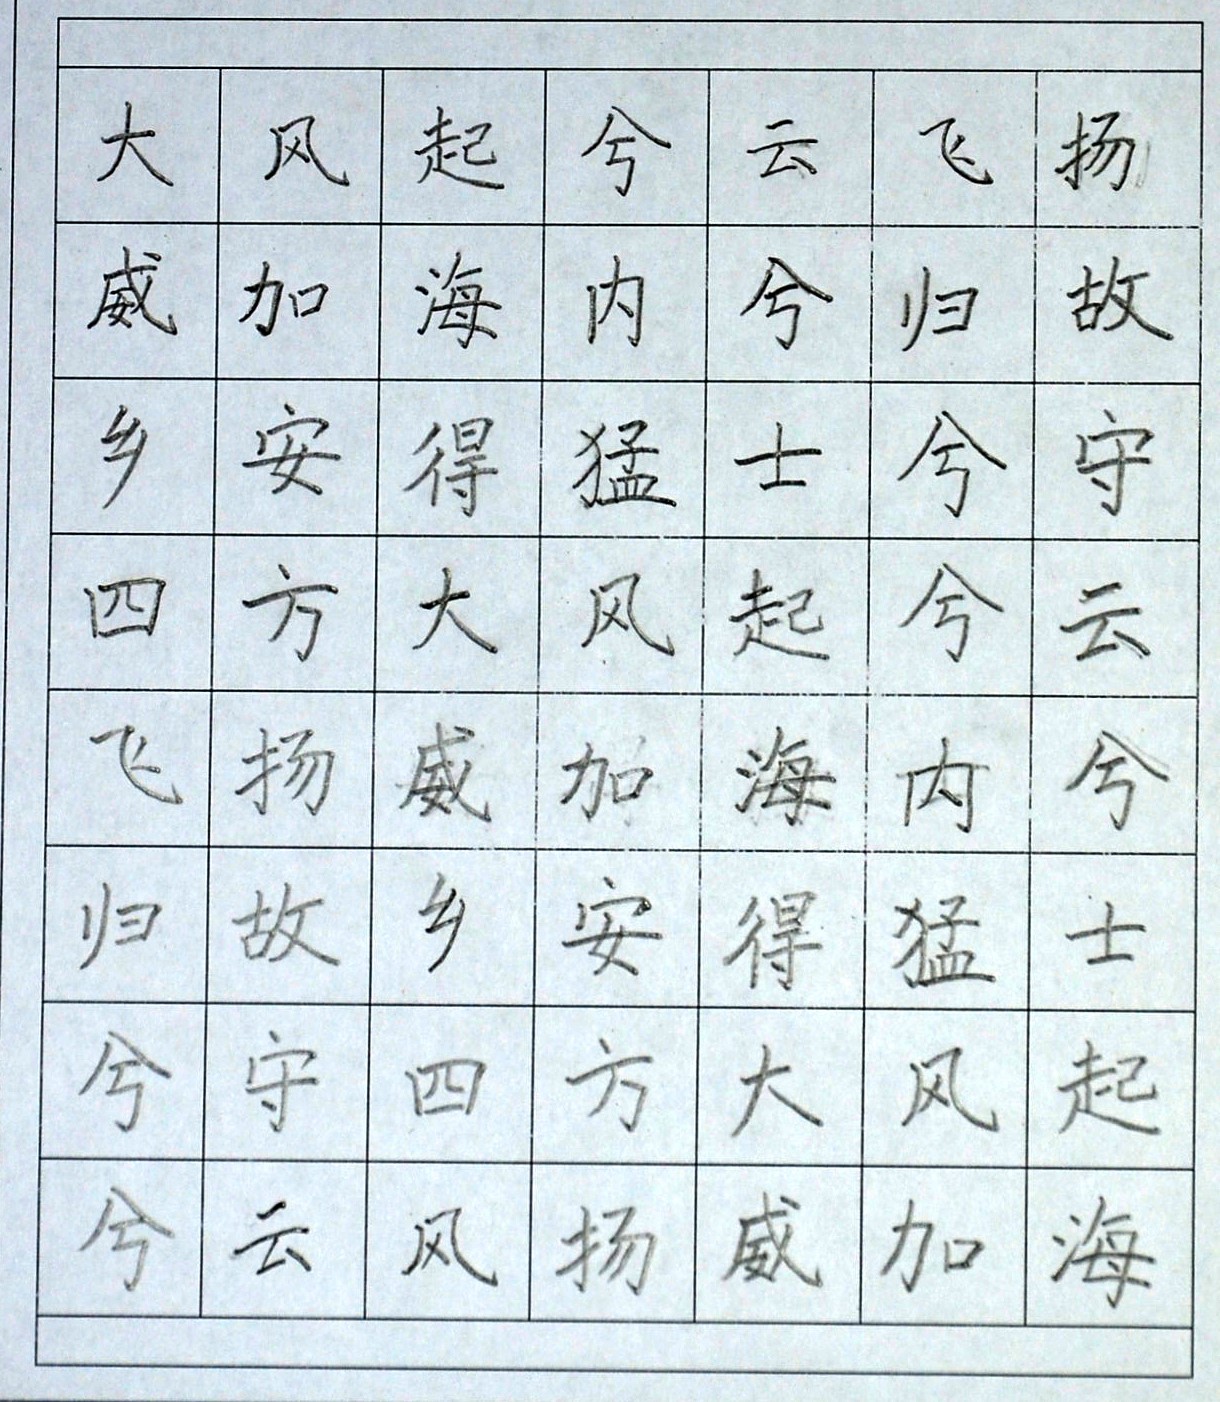 大风起兮云飞扬
威加海内兮归故
乡安得猛士兮守
四方大风起兮云
飞扬威加海内兮
归故乡安得猛士
兮守四方大风起
兮云风扬威加海